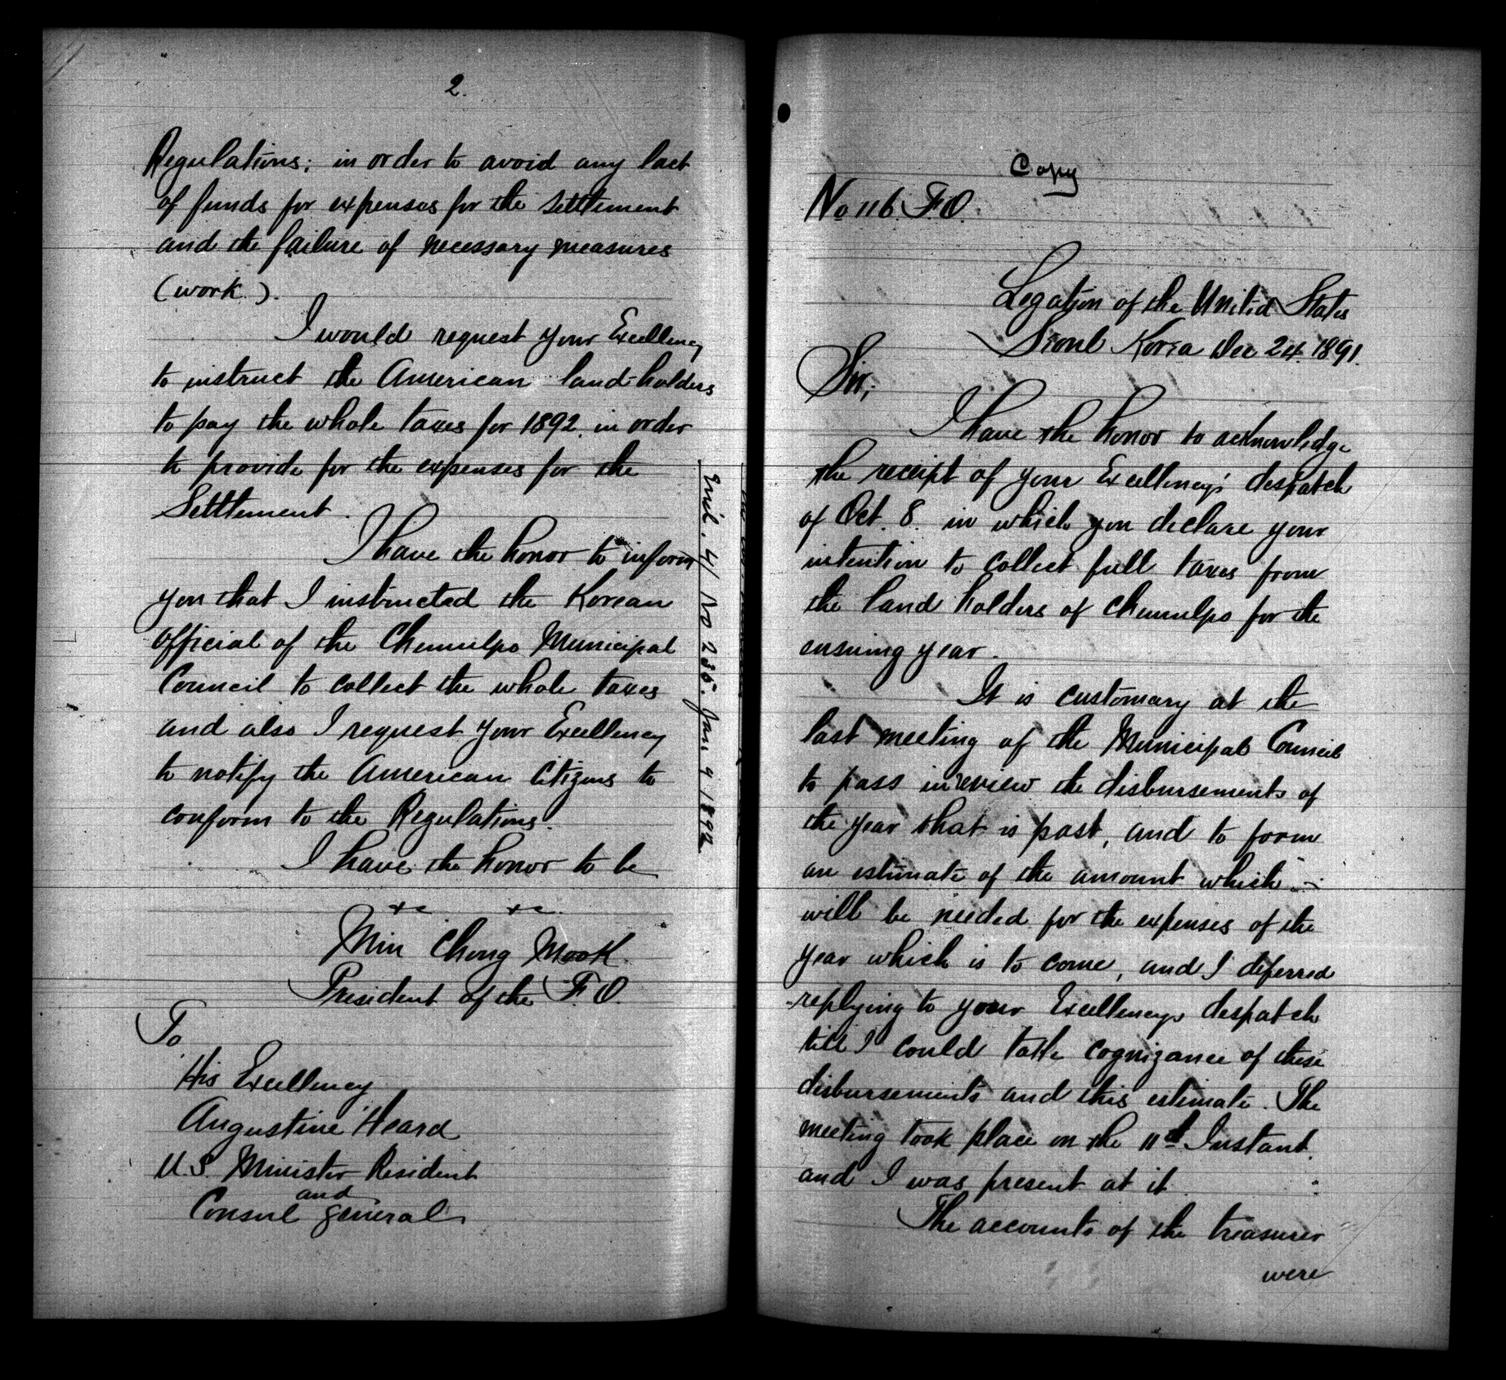 2.
Regulations; in order to avoid any lack
of funds for expenses for the settlement
and the failure of necessary measures
(work).
I would request your Excellency
to instruct the American land-holders
to pay the whole taxes for 1892 in order
to provide for the expenses for the
Settlement.
I have the honor to inform
you that I instructed the Korean
official of the Chemulpo Municipal
Council to collect the whole taxes
and also I request your Excellency
to notify the American Citizens to
conform to the Regulations.
I have the honor to be
&c &c.
Min Chong Mook.
President of the F.O.
To
His Excellency
Augustine Heard
U.S. Minister Resident
and
Consul General
Encl. 4/ No 235. Jan 9 1892
Copy
No 116. F.O.
Legation of the United States
Seoul Korea Dec 24. 1891.
Sir;
I have the honor to acknowledge
the receipt of your Excellency's despatch
of Oct. 8. in which you declare your
intention to collect full taxes from
the land holders of Chemulpo for the
ensuing year.
It is customary at the
last meeting of the Municipal Council
to pass in review the disbursements of
the year that is past, and to form
an estimate of the amount which
will be needed for the expenses of the
year which is to come, and I deferred
replying to your Excellency's despatch
till I could take cognizance of these
disbursements and this estimate. The
meeting took place on the 11th Instant.
and I was present at it.
The accounts of the treasurer
were